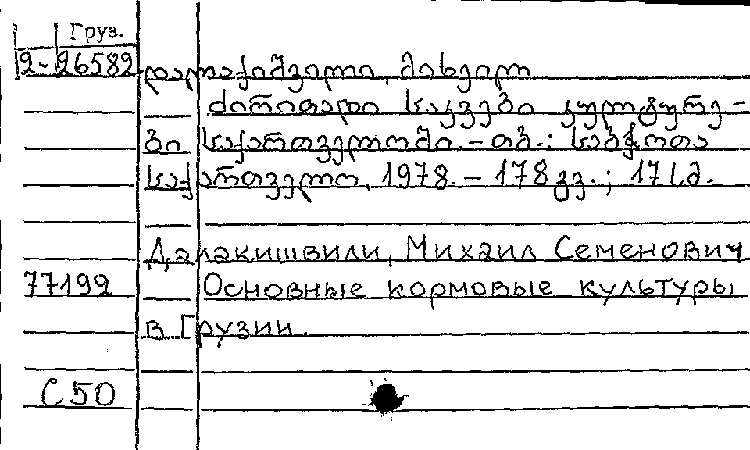 Груз.
2-26582
დალაქიშვილი, მიხეილ
ძირითადი საკვები კულტურე-
ბი საქართველოში.-თბ.: საბჭოთა
საქართველო, 1978.-178გვ.; 17 ს.მ.
Далакишвили, Михаил Семенович
77192
Основные кормовые культуры
в Грузии.
С50